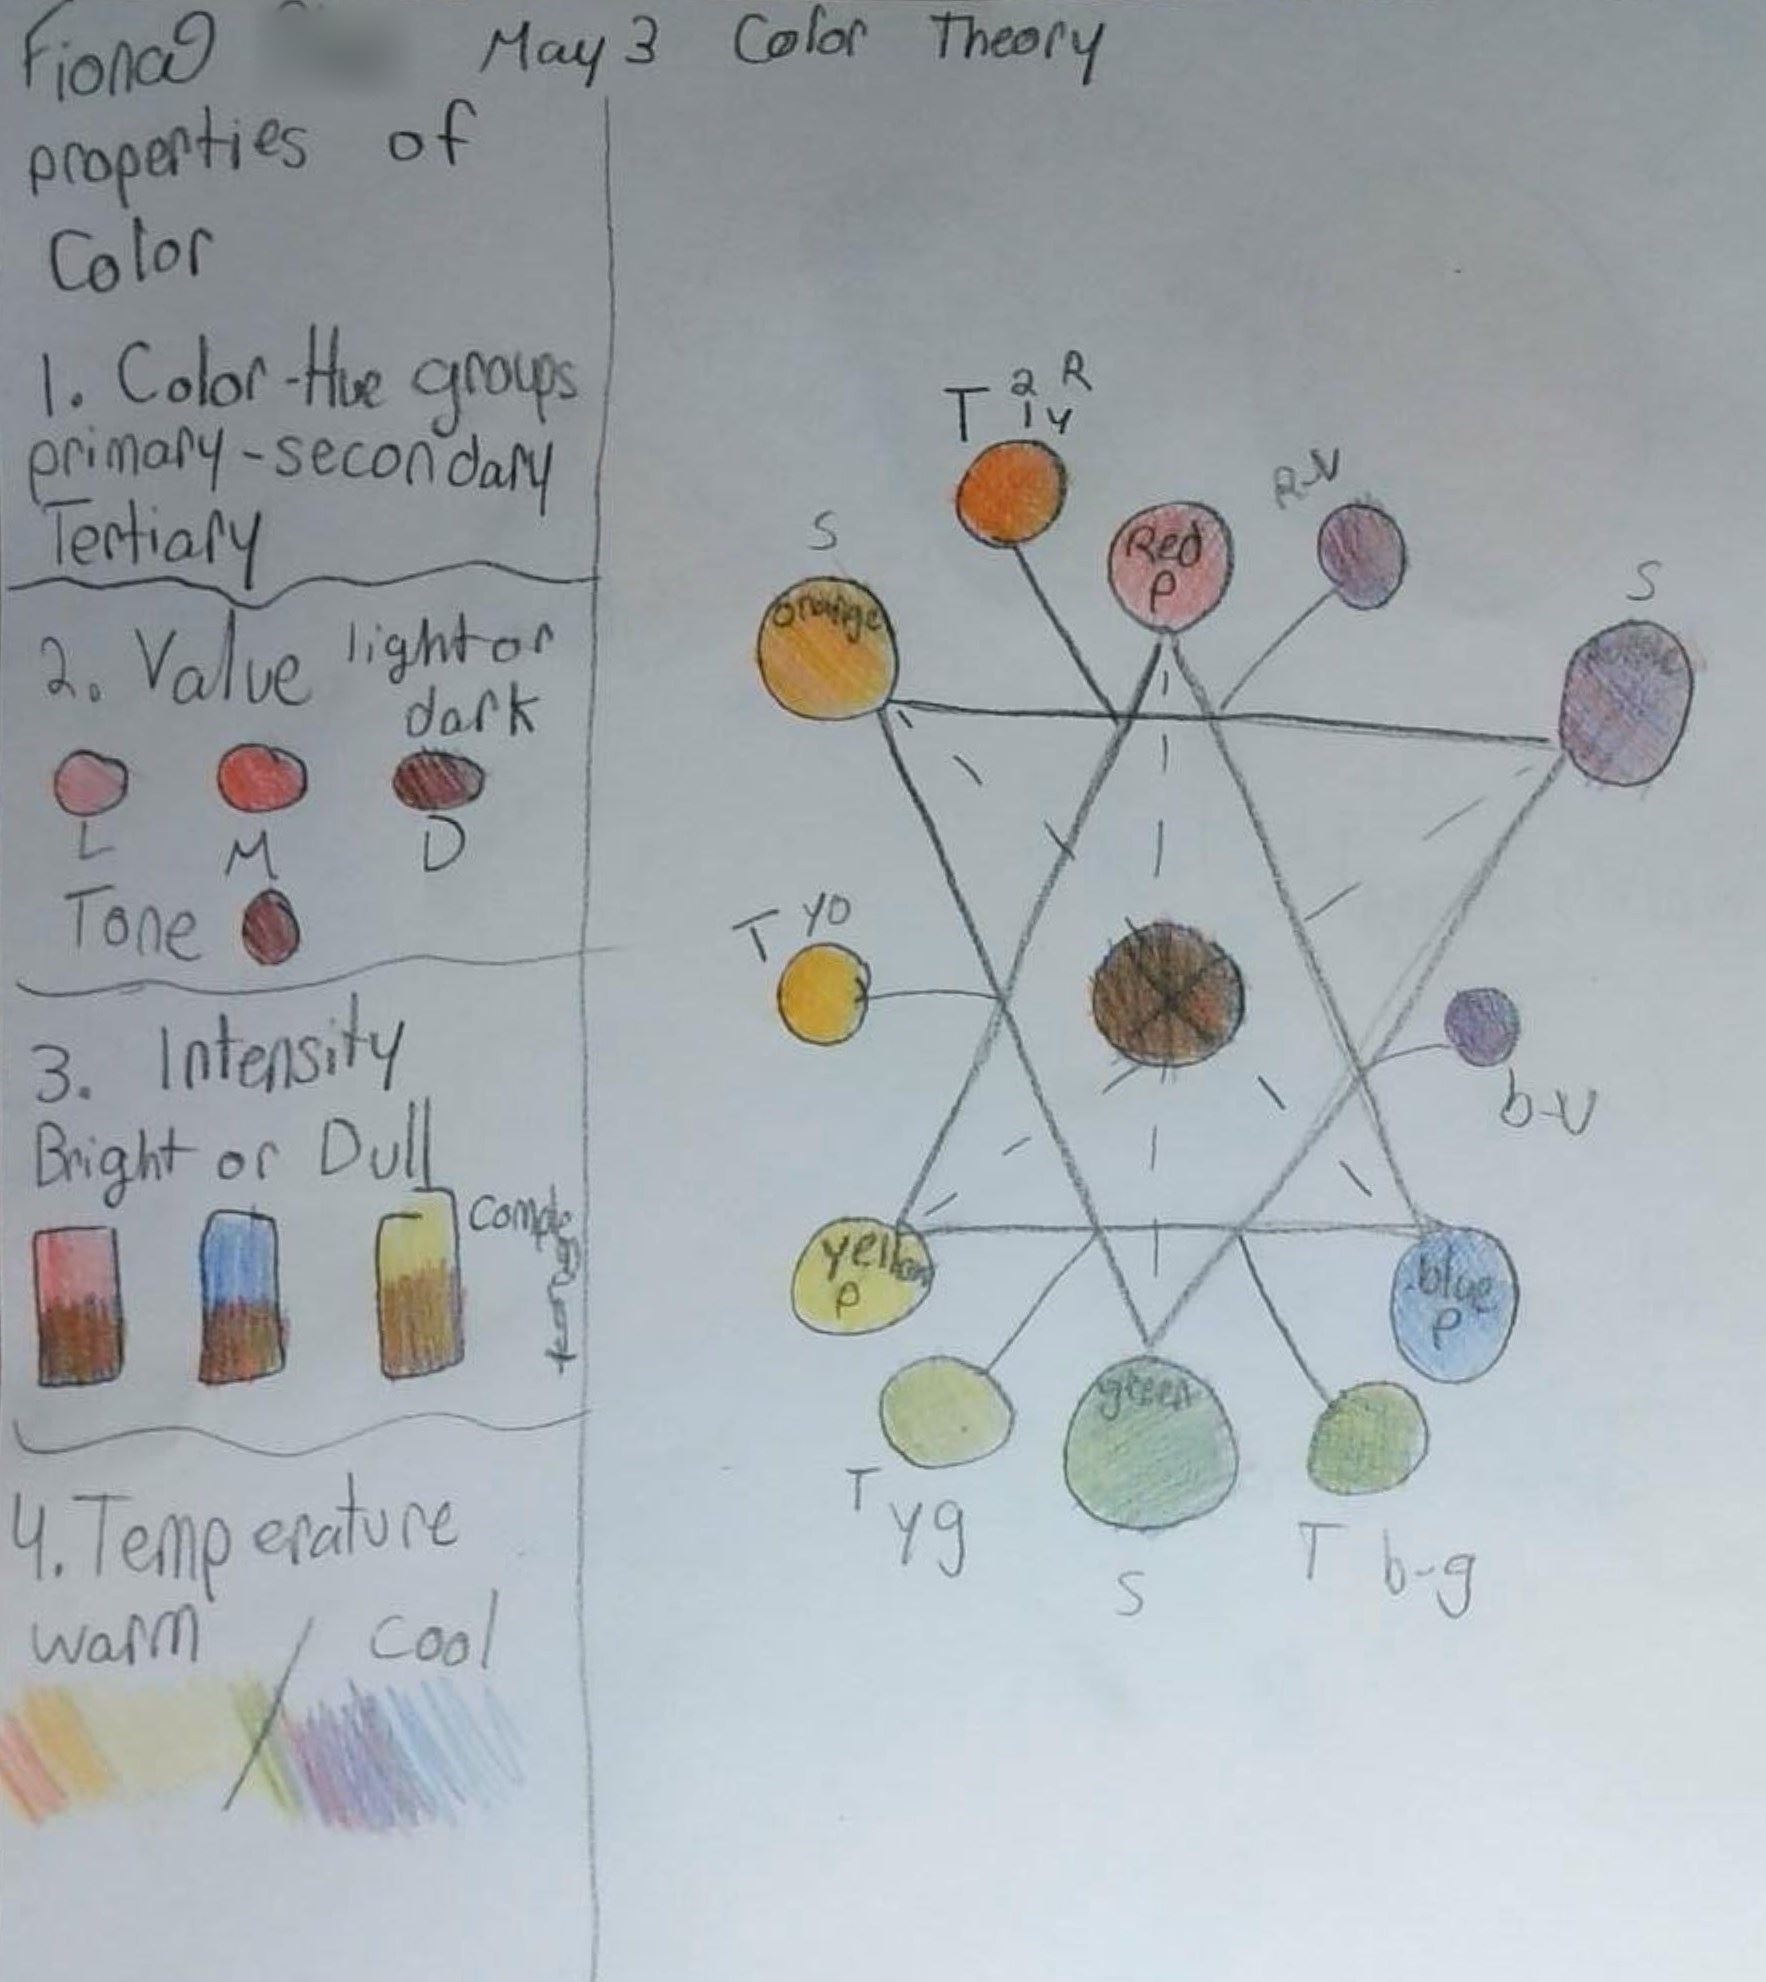 Fiona
May 3 Color Theory
properties of
Color
1. Color-Hue groups
primary-secondary
Tertiary
2. Value light or
dark
L M D
Tone
3. Intensity
Bright or Dull
4. Temperature
warm / cool
T 2 R
1 Y
R-V
S
Red
P
orange
S
T YO
b-V
yellow
P
blue
P
green
T yg
S
T b-g